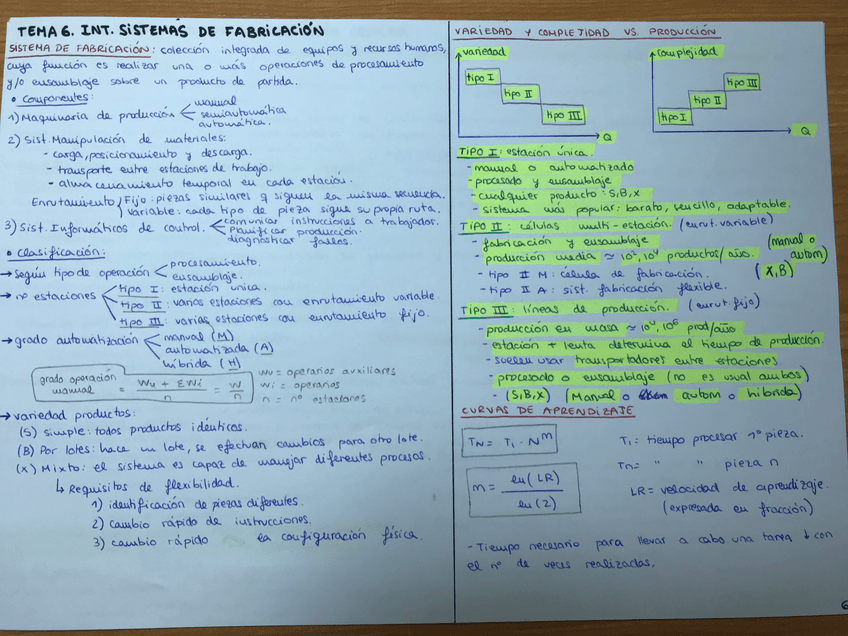 TEMA 6. INT. SISTEMAS DE FABRICACIÓN
SISTEMA DE FABRICACIÓN: colección integrada de equipos y recursos humanos,
cuya función es realizar una o más operaciones de procesamiento
y/o ensamblaje sobre un producto de partida.
• Componentes:
1) Maquinaria de producción < manual
semiautomática
automática.
2) Sist. Manipulación de materiales:
- carga, posicionamiento y descarga.
- transporte entre estaciones de trabajo.
- almacenamiento temporal en cada estación.
Enrutamiento / Fijo: piezas similares q siguen la misma secuencia.
\ variable: cada tipo de pieza sigue su propia ruta.
3) Sist. Informáticos de control. < comunicar instrucciones a trabajador.
Planificar producción.
diagnosticar fallos.
• Clasificación:
→ según tipo de operación < procesamiento.
ensamblaje.
→ nº estaciones < tipo I: estación única.
tipo II: varias estaciones con enrutamiento variable.
tipo III: varias estaciones con enrutamiento fijo.
→ grado automatización < manual (M)
automatizada (A)
híbrida (H)
grado operación manual = Wu + ΣWi / n = W / n
Wu = operarios auxiliares
Wi = operarios
n = nº estaciones
→ variedad productos:
(S) simple: todos productos idénticos.
(B) Por lotes: hace un lote, se efectúan cambios para otro lote.
(X) Mixto: el sistema es capaz de manejar diferentes procesos.
↳ Requisitos de flexibilidad.
1) identificación de piezas diferentes.
2) cambio rápido de instrucciones.
3) cambio rápido la configuración física.
VARIEDAD Y COMPLEJIDAD VS. PRODUCCIÓN
variedad
tipo I
tipo II
tipo III
Q
complejidad
tipo III
tipo II
tipo I
Q
TIPO I: estación única.
- manual o automatizado
- procesado y ensamblaje
- cualquier producto: S,B,X
- sistema más popular: barato, sencillo, adaptable.
TIPO II: células multi-estación. (enrut. variable)
- fabricación y ensamblaje (manual o autom)
- producción media ≈ 10², 10⁴ productos/año.
- tipo II M: célula de fabricación. (X,B)
- tipo II A: sist. fabricación flexible.
TIPO III: líneas de producción. (enrut. fijo)
- producción en masa ≈ 10⁴, 10⁶ prod/año
- estación + lenta determina el tiempo de producción.
- suelen usar transportadores entre estaciones.
- procesado o ensamblaje (no es usual ambos)
- (S,B,X) (Manual o autom o híbrida)
CURVAS DE APRENDIZAJE
TN = T1 · N^m
m = ln(LR) / ln(2)
T1 = tiempo procesar 1ª pieza.
Tn = " " pieza n
LR = velocidad de aprendizaje.
(expresada en fracción)
- Tiempo necesario para llevar a cabo una tarea ↓ con
el nº de veces realizadas.
6